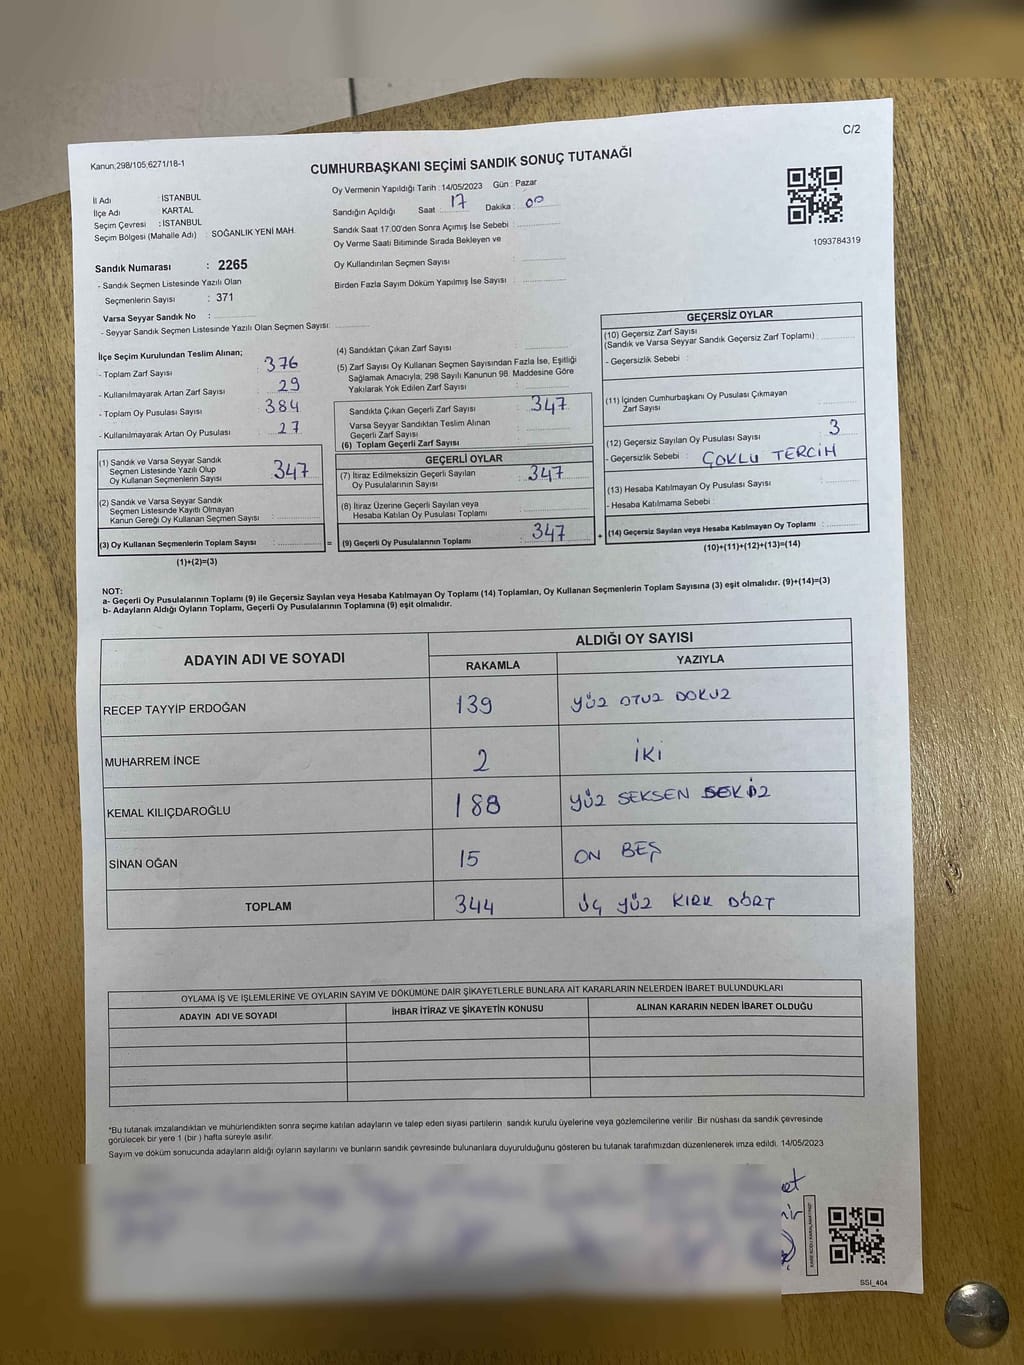 C/2
Kanun;298/105;6271/18-1
CUMHURBAŞKANI SEÇİMİ SANDIK SONUÇ TUTANAĞI
İl Adı : İSTANBUL
İlçe Adı : KARTAL
Seçim Çevresi : İSTANBUL
Seçim Bölgesi (Mahalle Adı) : SOĞANLIK YENİ MAH.
Sandık Numarası : 2265
- Sandık Seçmen Listesinde Yazılı Olan
Seçmenlerin Sayısı : 371
Varsa Seyyar Sandık No :
- Seyyar Sandık Seçmen Listesinde Yazılı Olan Seçmen Sayısı:
Oy Vermenin Yapıldığı Tarih : 14/05/2023 Gün : Pazar
Sandığın Açıldığı Saat : 17 Dakika : 00
Sandık Saat 17:00'den Sonra Açımış İse Sebebi :
Oy Verme Saati Bitiminde Sırada Bekleyen ve
Oy Kullandırılan Seçmen Sayısı :
Birden Fazla Sayım Döküm Yapılmış İse Sayısı :
1093784319
İlçe Seçim Kurulundan Teslim Alınan;
- Toplam Zarf Sayısı : 376
- Kullanılmayarak Artan Zarf Sayısı : 29
- Toplam Oy Pusulası Sayısı : 384
- Kullanılmayarak Artan Oy Pusulası : 27
(1) Sandık ve Varsa Seyyar Sandık
Seçmen Listesinde Yazılı Olup
Oy Kullanan Seçmenlerin Sayısı : 347
(2) Sandık ve Varsa Seyyar Sandık
Seçmen Listesinde Kayıtlı Olmayan
Kanun Gereği Oy Kullanan Seçmen Sayısı :
(3) Oy Kullanan Seçmenlerin Toplam Sayısı :
=
(1)+(2)=(3)
(4) Sandıktan Çıkan Zarf Sayısı :
(5) Zarf Sayısı Oy Kullanan Seçmen Sayısından Fazla İse, Eşitliği
Sağlamak Amacıyla, 298 Sayılı Kanunun 98. Maddesine Göre
Yakılarak Yok Edilen Zarf Sayısı :
Sandıkta Çıkan Geçerli Zarf Sayısı : 347
Varsa Seyyar Sandıktan Teslim Alınan
Geçerli Zarf Sayısı :
(6) Toplam Geçerli Zarf Sayısı :
GEÇERLİ OYLAR
(7) İtiraz Edilmeksizin Geçerli Sayılan
Oy Pusulalarının Sayısı : 347
(8) İtiraz Üzerine Geçerli Sayılan veya
Hesaba Katılan Oy Pusulası Toplamı :
(9) Geçerli Oy Pusulalarının Toplamı : 347
+
GEÇERSİZ OYLAR
(10) Geçersiz Zarf Sayısı
(Sandık ve Varsa Seyyar Sandık Geçersiz Zarf Toplamı) :
- Geçersizlik Sebebi :
(11) İçinden Cumhurbaşkanı Oy Pusulası Çıkmayan
Zarf Sayısı :
(12) Geçersiz Sayılan Oy Pusulası Sayısı : 3
- Geçersizlik Sebebi : ÇOKLU TERCİH
(13) Hesaba Katılmayan Oy Pusulası Sayısı :
- Hesaba Katılmama Sebebi :
(14) Geçersiz Sayılan veya Hesaba Katılmayan Oy Toplamı :
(10)+(11)+(12)+(13)=(14)
NOT:
a- Geçerli Oy Pusulalarının Toplamı (9) ile Geçersiz Sayılan veya Hesaba Katılmayan Oy Toplamı (14) Toplamları, Oy Kullanan Seçmenlerin Toplam Sayısına (3) eşit olmalıdır. (9)+(14)=(3)
b- Adayların Aldığı Oyların Toplamı, Geçerli Oy Pusulalarının Toplamına (9) eşit olmalıdır.
ADAYIN ADI VE SOYADI
ALDIĞI OY SAYISI
RAKAMLA YAZIYLA
RECEP TAYYİP ERDOĞAN 139 YÜZ OTUZ DOKUZ
MUHARREM İNCE 2 İKİ
KEMAL KILIÇDAROĞLU 188 YÜZ SEKSEN SEKİZ
SİNAN OĞAN 15 ON BEŞ
TOPLAM 344 ÜÇ YÜZ KIRK DÖRT
OYLAMA İŞ VE İŞLEMLERİNE VE OYLARIN SAYIM VE DÖKÜMÜNE DAİR ŞİKAYETLERLE BUNLARA AİT KARARLARIN NELERDEN İBARET BULUNDUKLARI
ADAYIN ADI VE SOYADI İHBAR İTİRAZ VE ŞİKAYETİN KONUSU ALINAN KARARIN NEDEN İBARET OLDUĞU
*Bu tutanak imzalandıktan ve mühürlendikten sonra seçime katılan adayların ve talep eden siyasi partilerin sandık kurulu üyelerine veya gözlemcilerine verilir. Bir nüshası da sandık çevresinde
görülecek bir yere 1 (bir ) hafta süreyle asılır.
Sayım ve döküm sonucunda adayların aldığı oyların sayılarını ve bunların sandık çevresinde bulunanlara duyurulduğunu gösteren bu tutanak tarafımızdan düzenlenerek imza edildi. 14/05/2023
SSİ_404